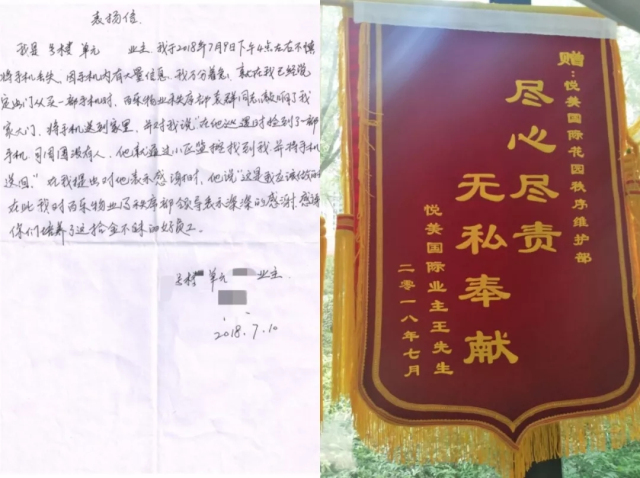 表扬信.
我是 号楼 单元 业主. 我于2018年7月9日下午4点左右不慎
将手机丢失、因手机内有重信息、我万分着急、就在我已经说
定出门从买一部手机时、西乐物业秩序部袁群同志敲响了我
家大门、将手机送到家里、并对我说"在他巡逻时捡到了一部
手机、周围没有人、他就通过小区监控找到我、并将手机
送回。" 当我提出对他表示感谢时、他说"这是我应该做的
在此我对西乐物业及秩序部领导表示深深的感谢、感谢
你们培养了这拾金不昧的好员工。
号楼 单元 业主
2018.7.10
赠：悦美国际花园秩序维护部
尽心尽责
无私奉献
悦美国际业主王先生
二零一八年七月